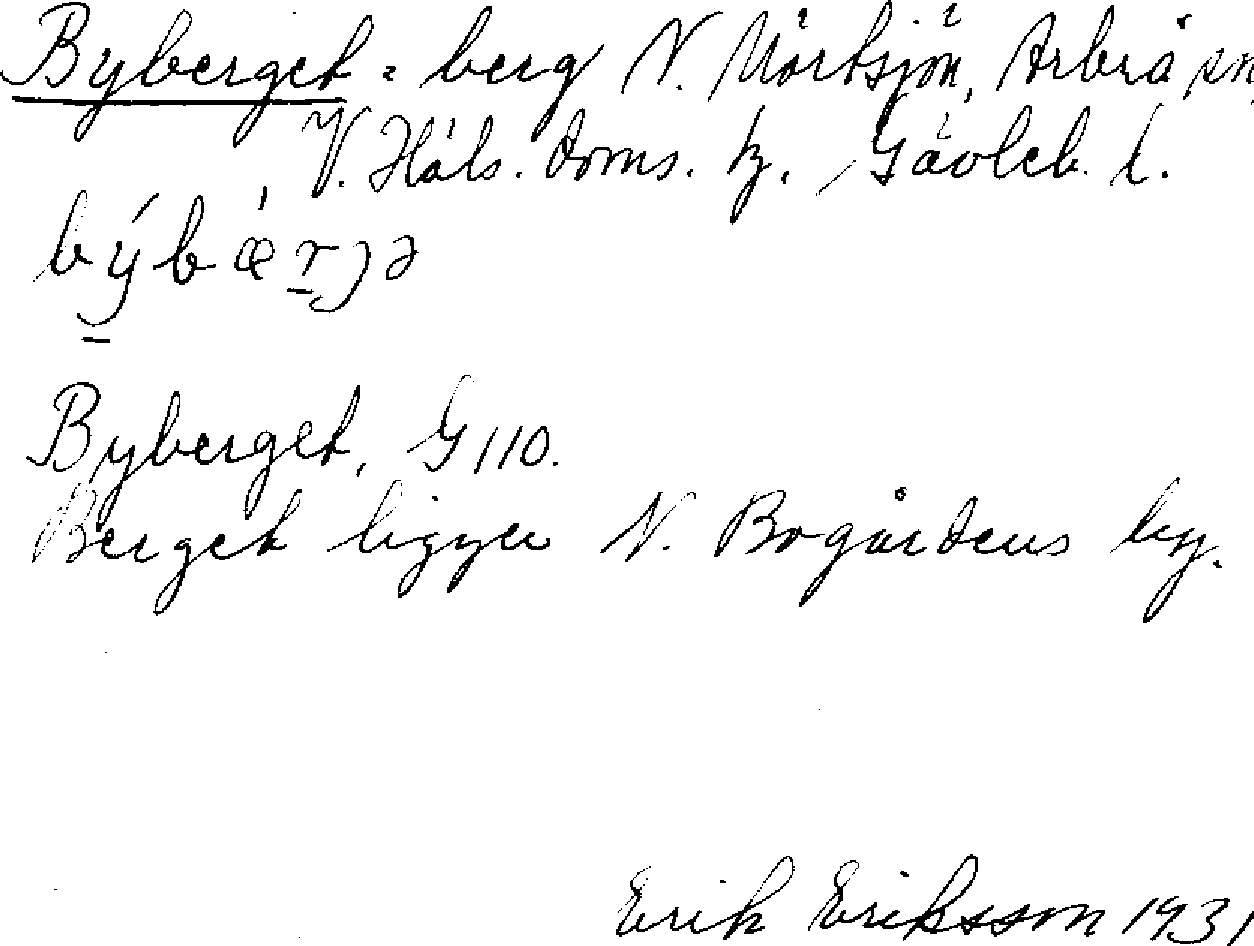 Byberget = berg N. Mörtsjön, Arbrå sn,
V. Häls. doms. tg., Gävleb. l.
býbæ̀rjə
Byberget, G 110.
Berget ligger N. Bogårdens by.
Erik Eriksson 1931